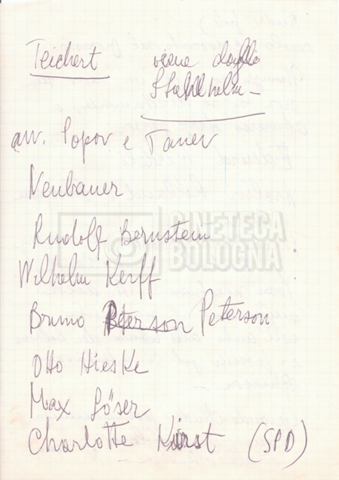 Teichert viene dallo
Stahlhelm -
avv. Popov e Tanev
Neubauer
CINETECA
BOLOGNA
Rudolf Bernstein
Wilhelm Kerff
Bruno Peterson Peterson
Otto Hieske
Max Göser
Charlotte Kirst (SPD)